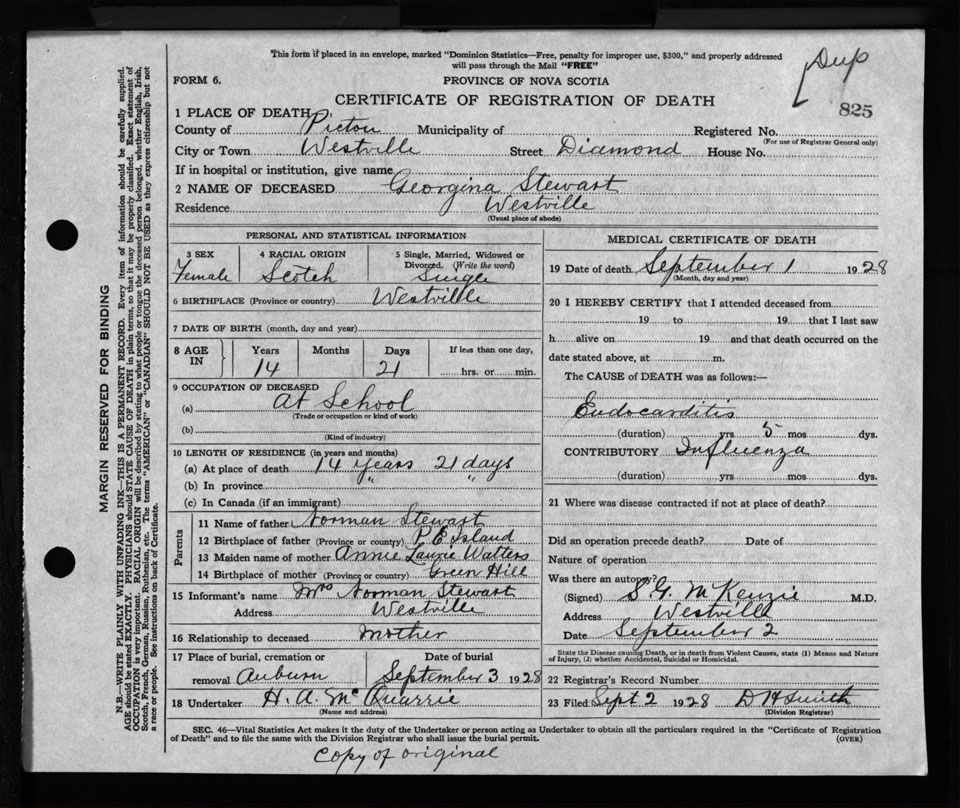 This form if placed in an envelope, marked "Dominion Statistics—Free, penalty for improper use, $300," and properly addressed
will pass through the Mail "FREE"
Dup
FORM 6.
PROVINCE OF NOVA SCOTIA
CERTIFICATE OF REGISTRATION OF DEATH
825
1 PLACE OF DEATH
County of Pictou Municipality of Registered No.
(For use of Registrar General only)
City or Town Westville Street Diamond House No.
If in hospital or institution, give name
2 NAME OF DECEASED Georgina Stewart
Residence Westville
(Usual place of abode)
PERSONAL AND STATISTICAL INFORMATION
3 SEX 4 RACIAL ORIGIN 5 Single, Married, Widowed or
Divorced. (Write the word)
Female Scotch Single
6 BIRTHPLACE (Province or country) Westville
7 DATE OF BIRTH (month, day and year)
8 AGE IN Years Months Days If less than one day,
14 21 hrs. or min.
9 OCCUPATION OF DECEASED
(a) At School
(Trade or occupation or kind of work)
(b)
(Kind of industry)
10 LENGTH OF RESIDENCE (in years and months)
(a) At place of death 14 years 21 days
(b) In province " "
(c) In Canada (if an immigrant)
Parents
11 Name of father Norman Stewart
12 Birthplace of father (Province or country) P E Island
13 Maiden name of mother Annie Laurie Watters
14 Birthplace of mother (Province or country) Green Hill
15 Informant's name Mrs Norman Stewart
Address Westville
16 Relationship to deceased Mother
17 Place of burial, cremation or Date of burial
removal Auburn September 3 1928
18 Undertaker H. A. McQuarrie
(Name and address)
MEDICAL CERTIFICATE OF DEATH
19 Date of death September 1 1928
(Month, day and year)
20 I HEREBY CERTIFY that I attended deceased from
19 to 19 that I last saw
h alive on 19 and that death occurred on the
date stated above, at m.
The CAUSE of DEATH was as follows:—
Endocarditis
(duration) yrs 5 mos dys.
CONTRIBUTORY Influenza
(duration) yrs mos dys.
21 Where was disease contracted if not at place of death?
Did an operation precede death? Date of
Nature of operation
Was there an autopsy?
(Signed) S G McKenzie M.D.
Address Westville
Date September 2
State the Disease causing Death, or in death from Violent Causes, state (1) Means and Nature
of Injury, (2) whether Accidental, Suicidal or Homicidal.
22 Registrar's Record Number
23 Filed Sept 2 1928 D H Smith
(Division Registrar)
SEC. 46—Vital Statistics Act makes it the duty of the Undertaker or person acting as Undertaker to obtain all the particulars required in the "Certificate of Registration
of Death" and to file the same with the Division Registrar who shall issue the burial permit.
(OVER)
Copy of original
MARGIN RESERVED FOR BINDING
N.B.—WRITE PLAINLY WITH UNFADING INK—THIS IS A PERMANENT RECORD. Every item of information should be carefully supplied.
AGE should be stated EXACTLY. PHYSICIANS should STATE CAUSE OF DEATH in plain terms, so that it may be properly classified. Exact statement of
OCCUPATION is very important. RACIAL ORIGIN will be described by stating to what people or tongue the deceased person belonged, whether English, Irish,
Scotch, French, German, Russian, Ruthenian, etc. The terms "AMERICAN" or "CANADIAN" SHOULD NOT BE USED as they express citizenship but not
a race or people. See instructions on back of Certificate.